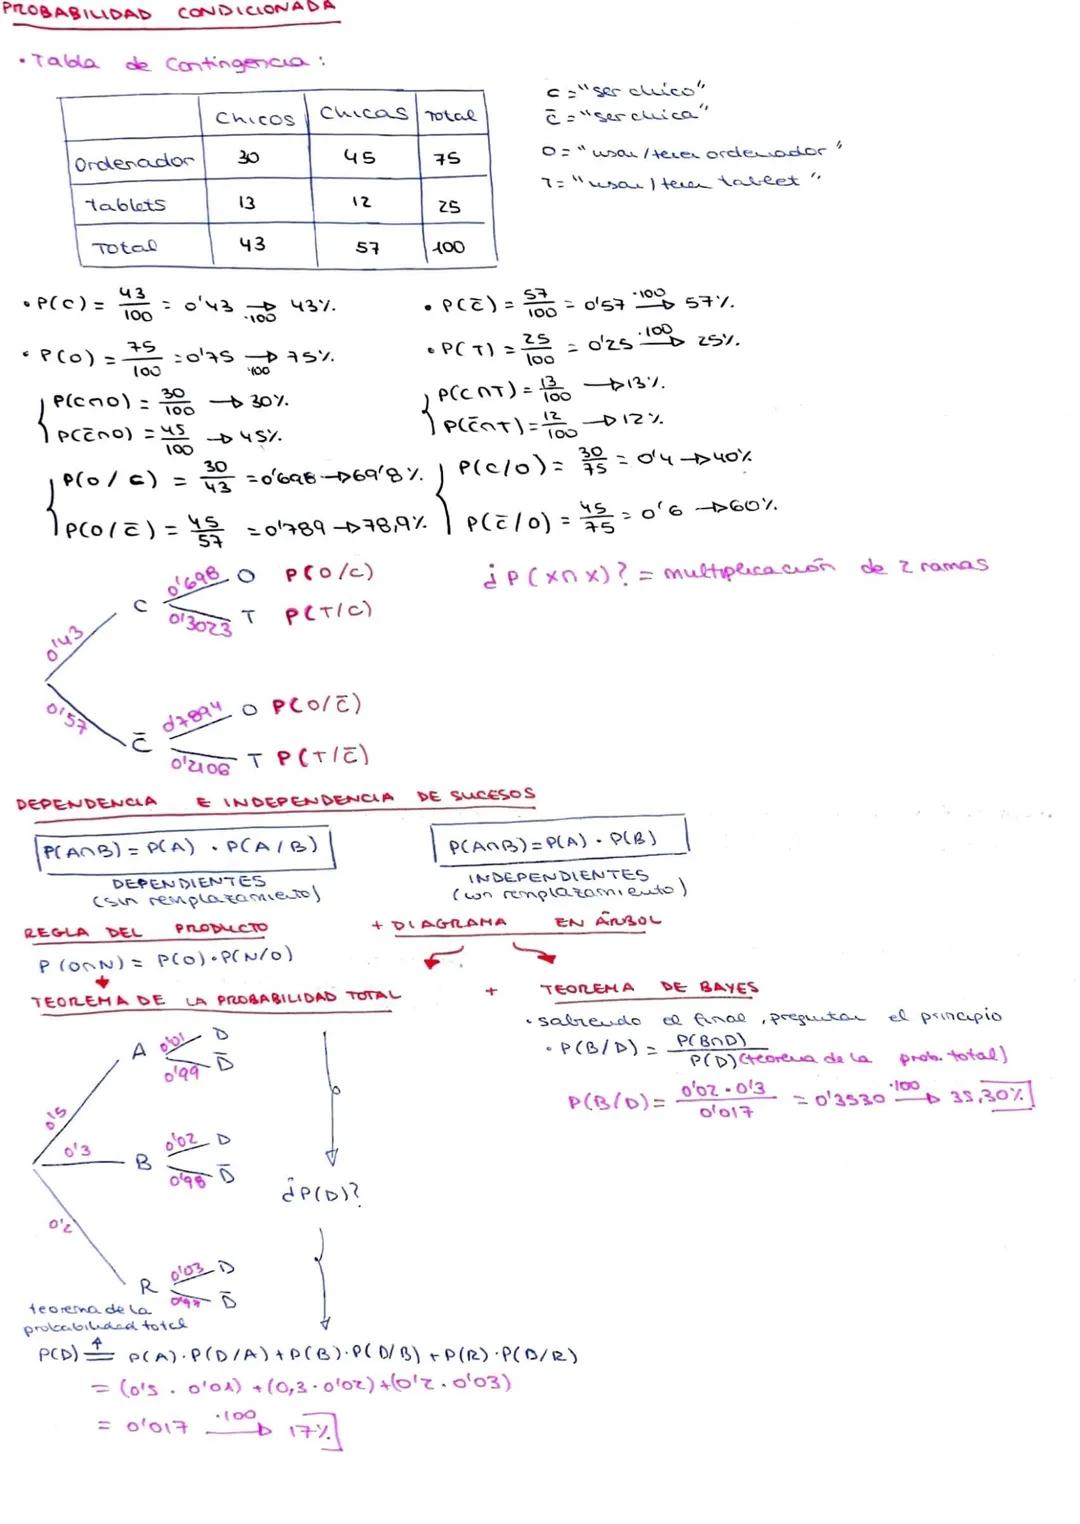 PROBABILIDAD CONDICIONADA
• Tabla de Contingencia:
Chicos Chicas Total
Ordenador 30 45 75
Tablets 13 12 25
Total 43 57 100
C = "ser chico"
C̄ = "ser chica"
O = "usar/tener ordenador"
T = "usar/tener tablet"
• P(C) = 43/100 = 0'43 →·100 43%.
• P(C̄) = 57/100 = 0'57 →·100 57%.
• P(O) = 75/100 = 0'75 →·100 75%.
• P(T) = 25/100 = 0'25 →·100 25%.
P(C∩O) = 30/100 → 30%.
P(C̄∩O) = 45/100 → 45%.
P(C∩T) = 13/100 → 13%.
P(C̄∩T) = 12/100 → 12%
P(O/C) = 30/43 = 0'698 → 69'8%.
P(O/C̄) = 45/57 = 0'789 → 78,9%.
P(C/O) = 30/75 = 0'4 → 40%
P(C̄/O) = 45/75 = 0'6 → 60%.
0'43 C 0'698 O P(O/C)
0'3023 T P(T/C)
0'57 C̄ 0'7894 O P(O/C̄)
0'2106 T P(T/C̄)
¿P(x∩x)? = multiplicación de 2 ramas
DEPENDENCIA E INDEPENDENCIA DE SUCESOS
P(A∩B) = P(A) · P(A/B)
DEPENDIENTES
(sin remplazamiento)
P(A∩B) = P(A) · P(B)
INDEPENDIENTES
(con remplazamiento)
REGLA DEL PRODUCTO + DIAGRAMA EN ÁRBOL
P(O∩N) = P(O)·P(N/O)
TEOREMA DE LA PROBABILIDAD TOTAL + TEOREMA DE BAYES
• sabiendo el final, preguntar el principio
• P(B/D) = P(B∩D)/P(D) (teorema de la prob. total)
P(B/D) = 0'02 · 0'3/0'017 = 0'3530 →·100 35,30%
0'5 A 0'01 D
0'99 D̄
0'3 B 0'02 D
0'98 D̄
¿P(D)?
0'2 R 0'03 D
0'97 D̄
teorema de la
probabilidad total
P(D) = P(A)·P(D/A) + P(B)·P(D/B) + P(R)·P(D/R)
= (0'5 · 0'01) + (0,3 · 0'02) + (0'2 · 0'03)
= 0'017 →·100 17%